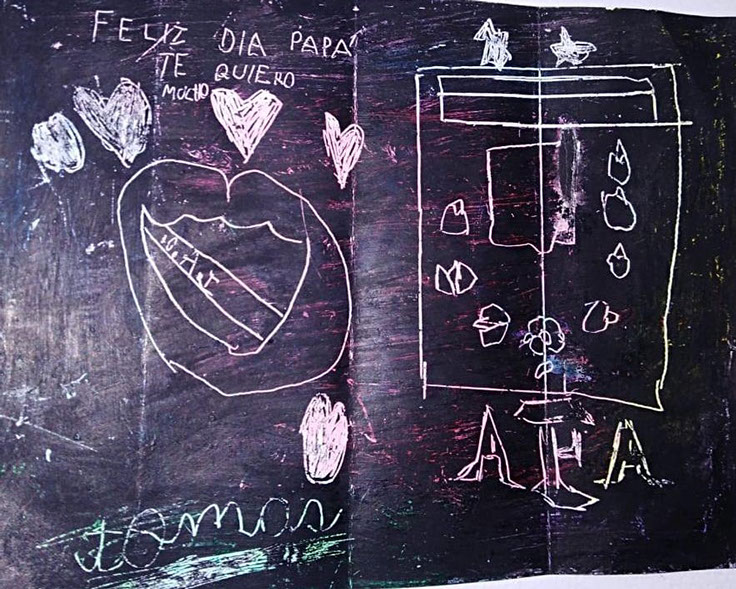 FELIZ DIA PAPÁ
TE QUIERO
MUCHO
AFA
tomas